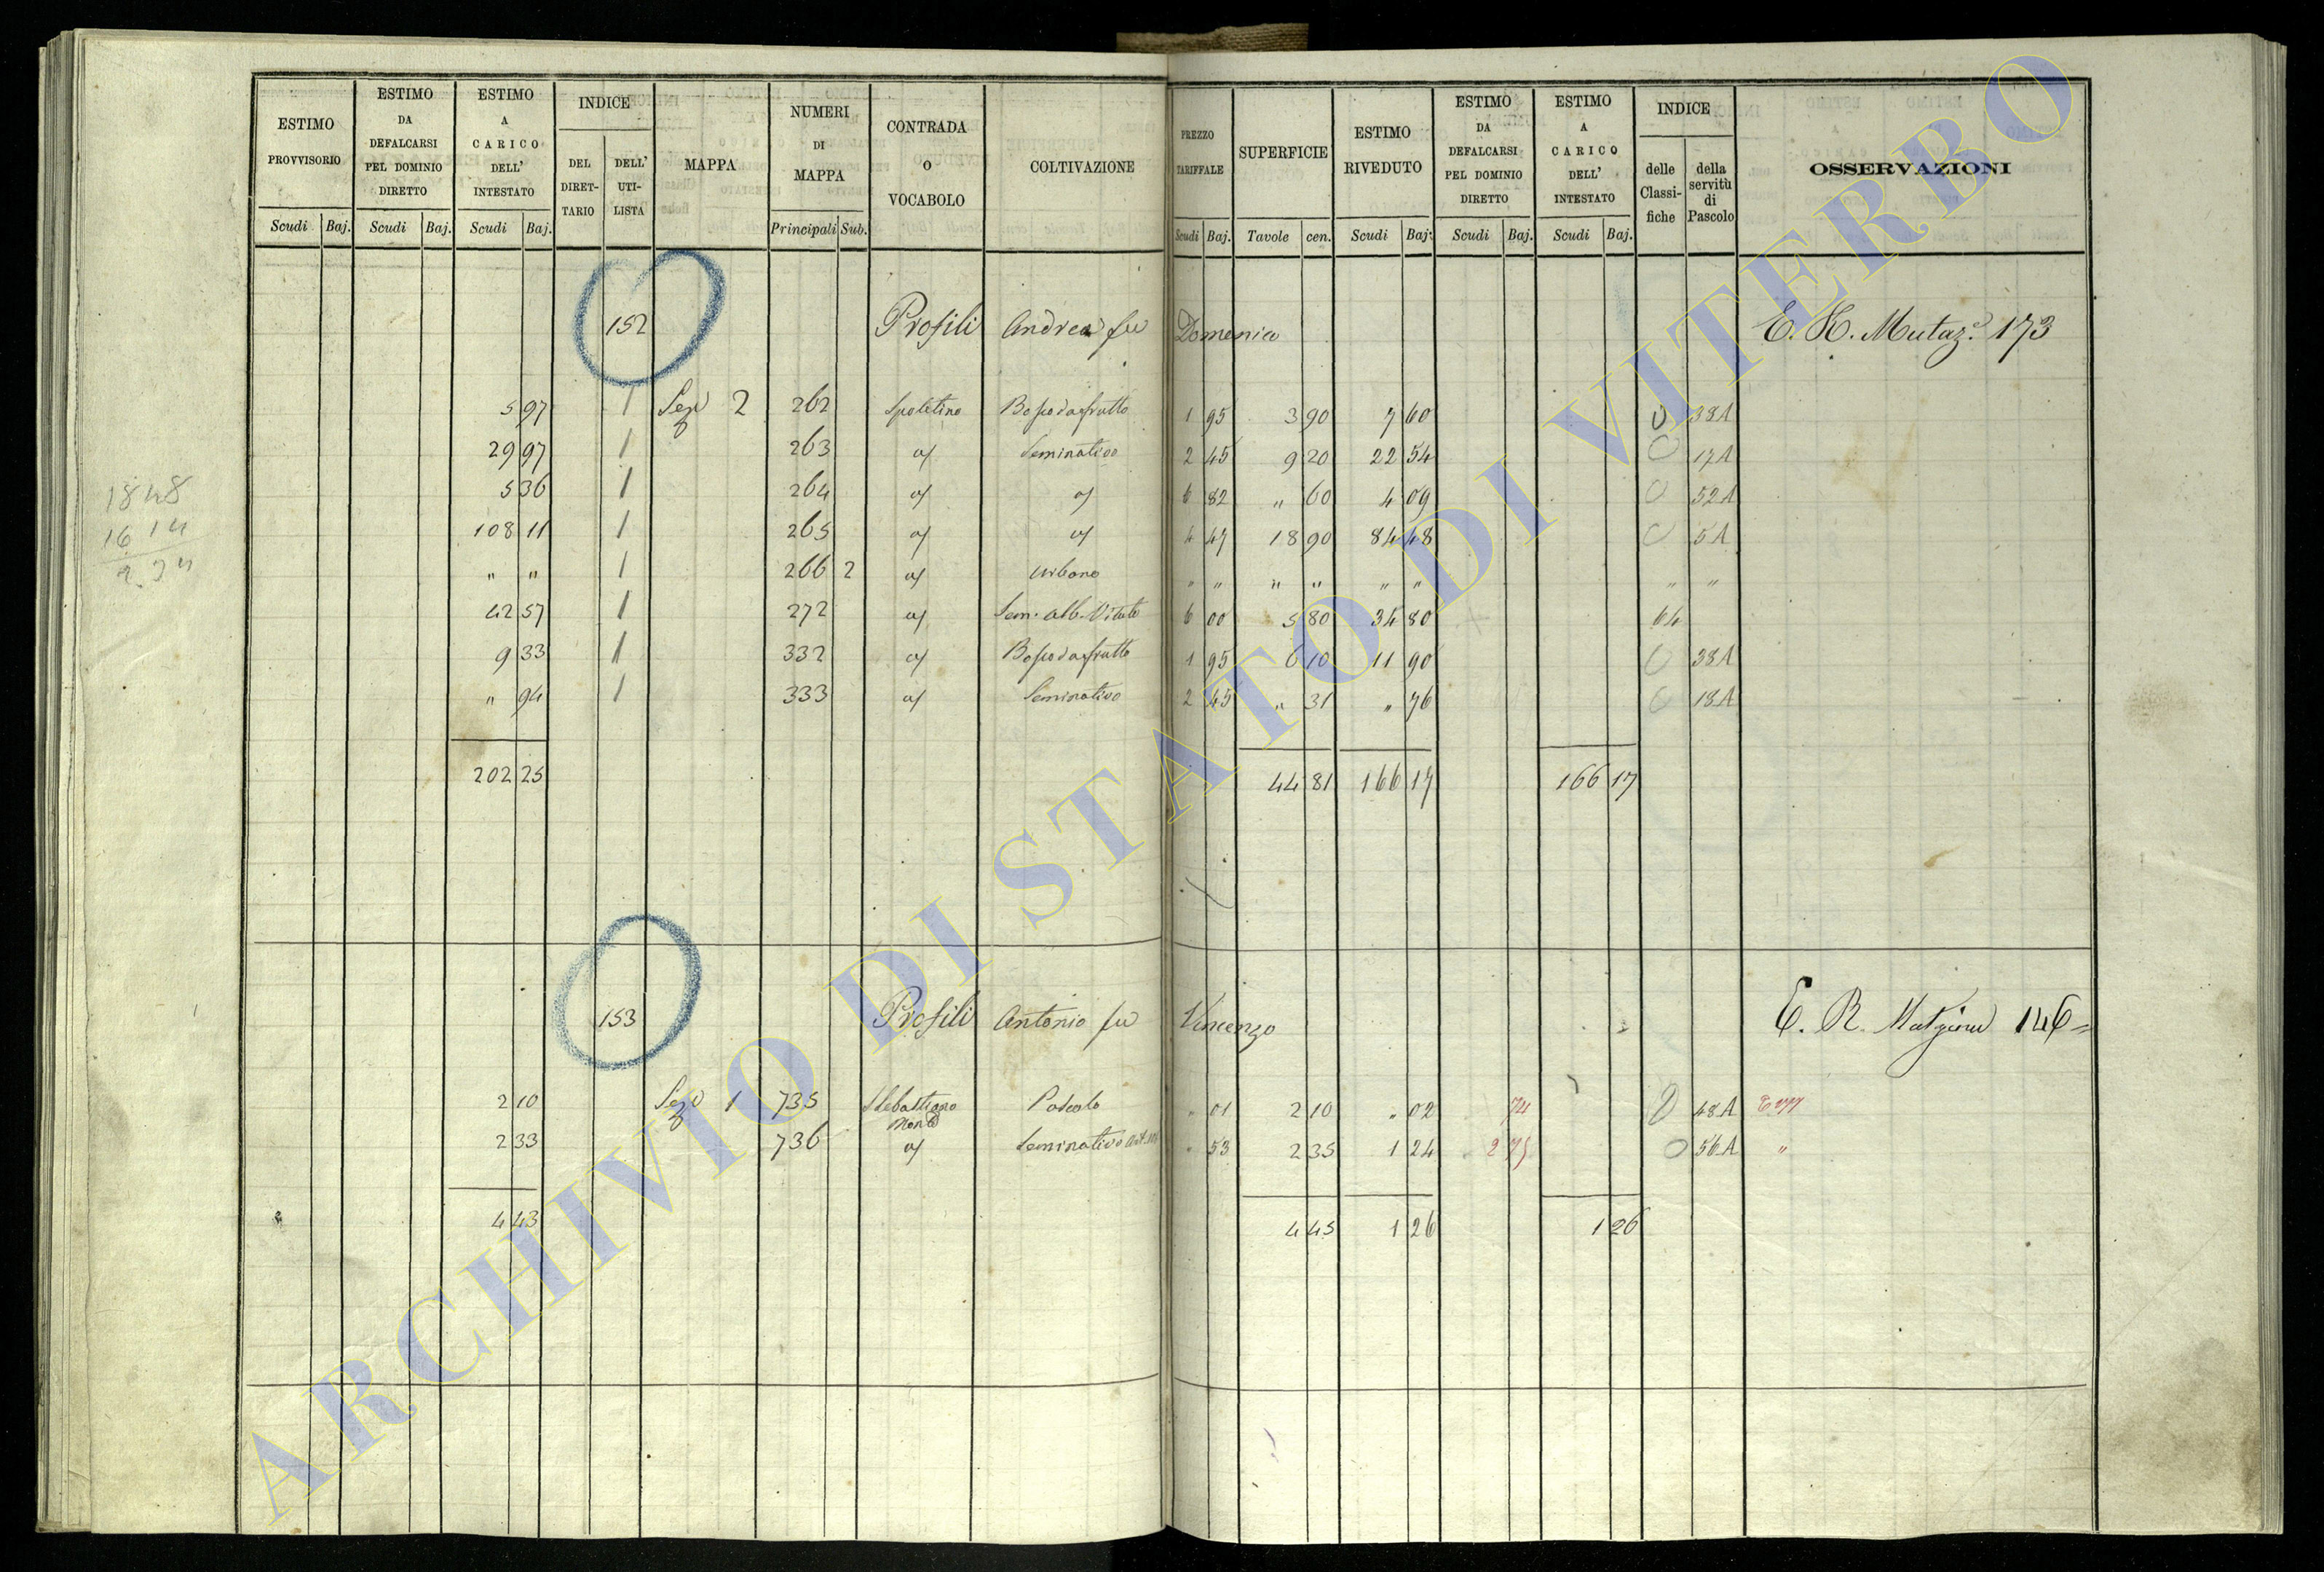 ESTIMO PROVVISORIO Scudi Baj.
ESTIMO DA DEFALCARSI PEL DOMINIO DIRETTO Scudi Baj.
ESTIMO A CARICO DELL' INTESTATO Scudi Baj.
INDICE DEL DIRET-TARIO DELL' UTI-LISTA
MAPPA
NUMERI DI MAPPA Principali Sub.
CONTRADA O VOCABOLO
COLTIVAZIONE
PREZZO TARIFFALE Scudi Baj.
SUPERFICIE Tavole cen.
ESTIMO RIVEDUTO Scudi Baj.
ESTIMO DA DEFALCARSI PEL DOMINIO DIRETTO Scudi Baj.
ESTIMO A CARICO DELL' INTESTATO Scudi Baj.
INDICE delle Classi-fiche della servitù di Pascolo
OSSERVAZIONI
152 Profili Andrea fu Domenico E. R. Mutaz.e 173
5 97 1 Sez 2 262 Spoletino Bosco da frutto 1 95 3 90 7 60 0 38A
29 97 1 263 a/ Seminativo 2 45 9 20 22 54 0 17A
5 36 1 264 a/ a/ 6 82 " 60 4 09 0 52A
108 11 1 265 a/ a/ 4 47 18 90 84 48 0 5A
" " 1 266 2 a/ Urbano " " " " " " " "
42 57 1 272 a/ Sem. alb. Vitato 6 00 5 80 34 80 64
9 33 1 332 a/ Bosco da frutto 1 95 6 10 11 90 0 38A
" 94 1 333 a/ Seminativo 2 45 " 31 " 76 0 18A
202 25 44 81 166 17 166 17
1848
1614
234
153 Profili Antonio fu Vincenzo E. R. 146=
2 10 Sez 1 735 Pascolo " 01 2 10 " 02 74 0 48A
2 33 736 a/ Seminativo " 53 2 35 1 24 2 75 0 56A "
4 43 4 45 1 26 1 26
ARCHIVIO DI STATO DI VITERBO